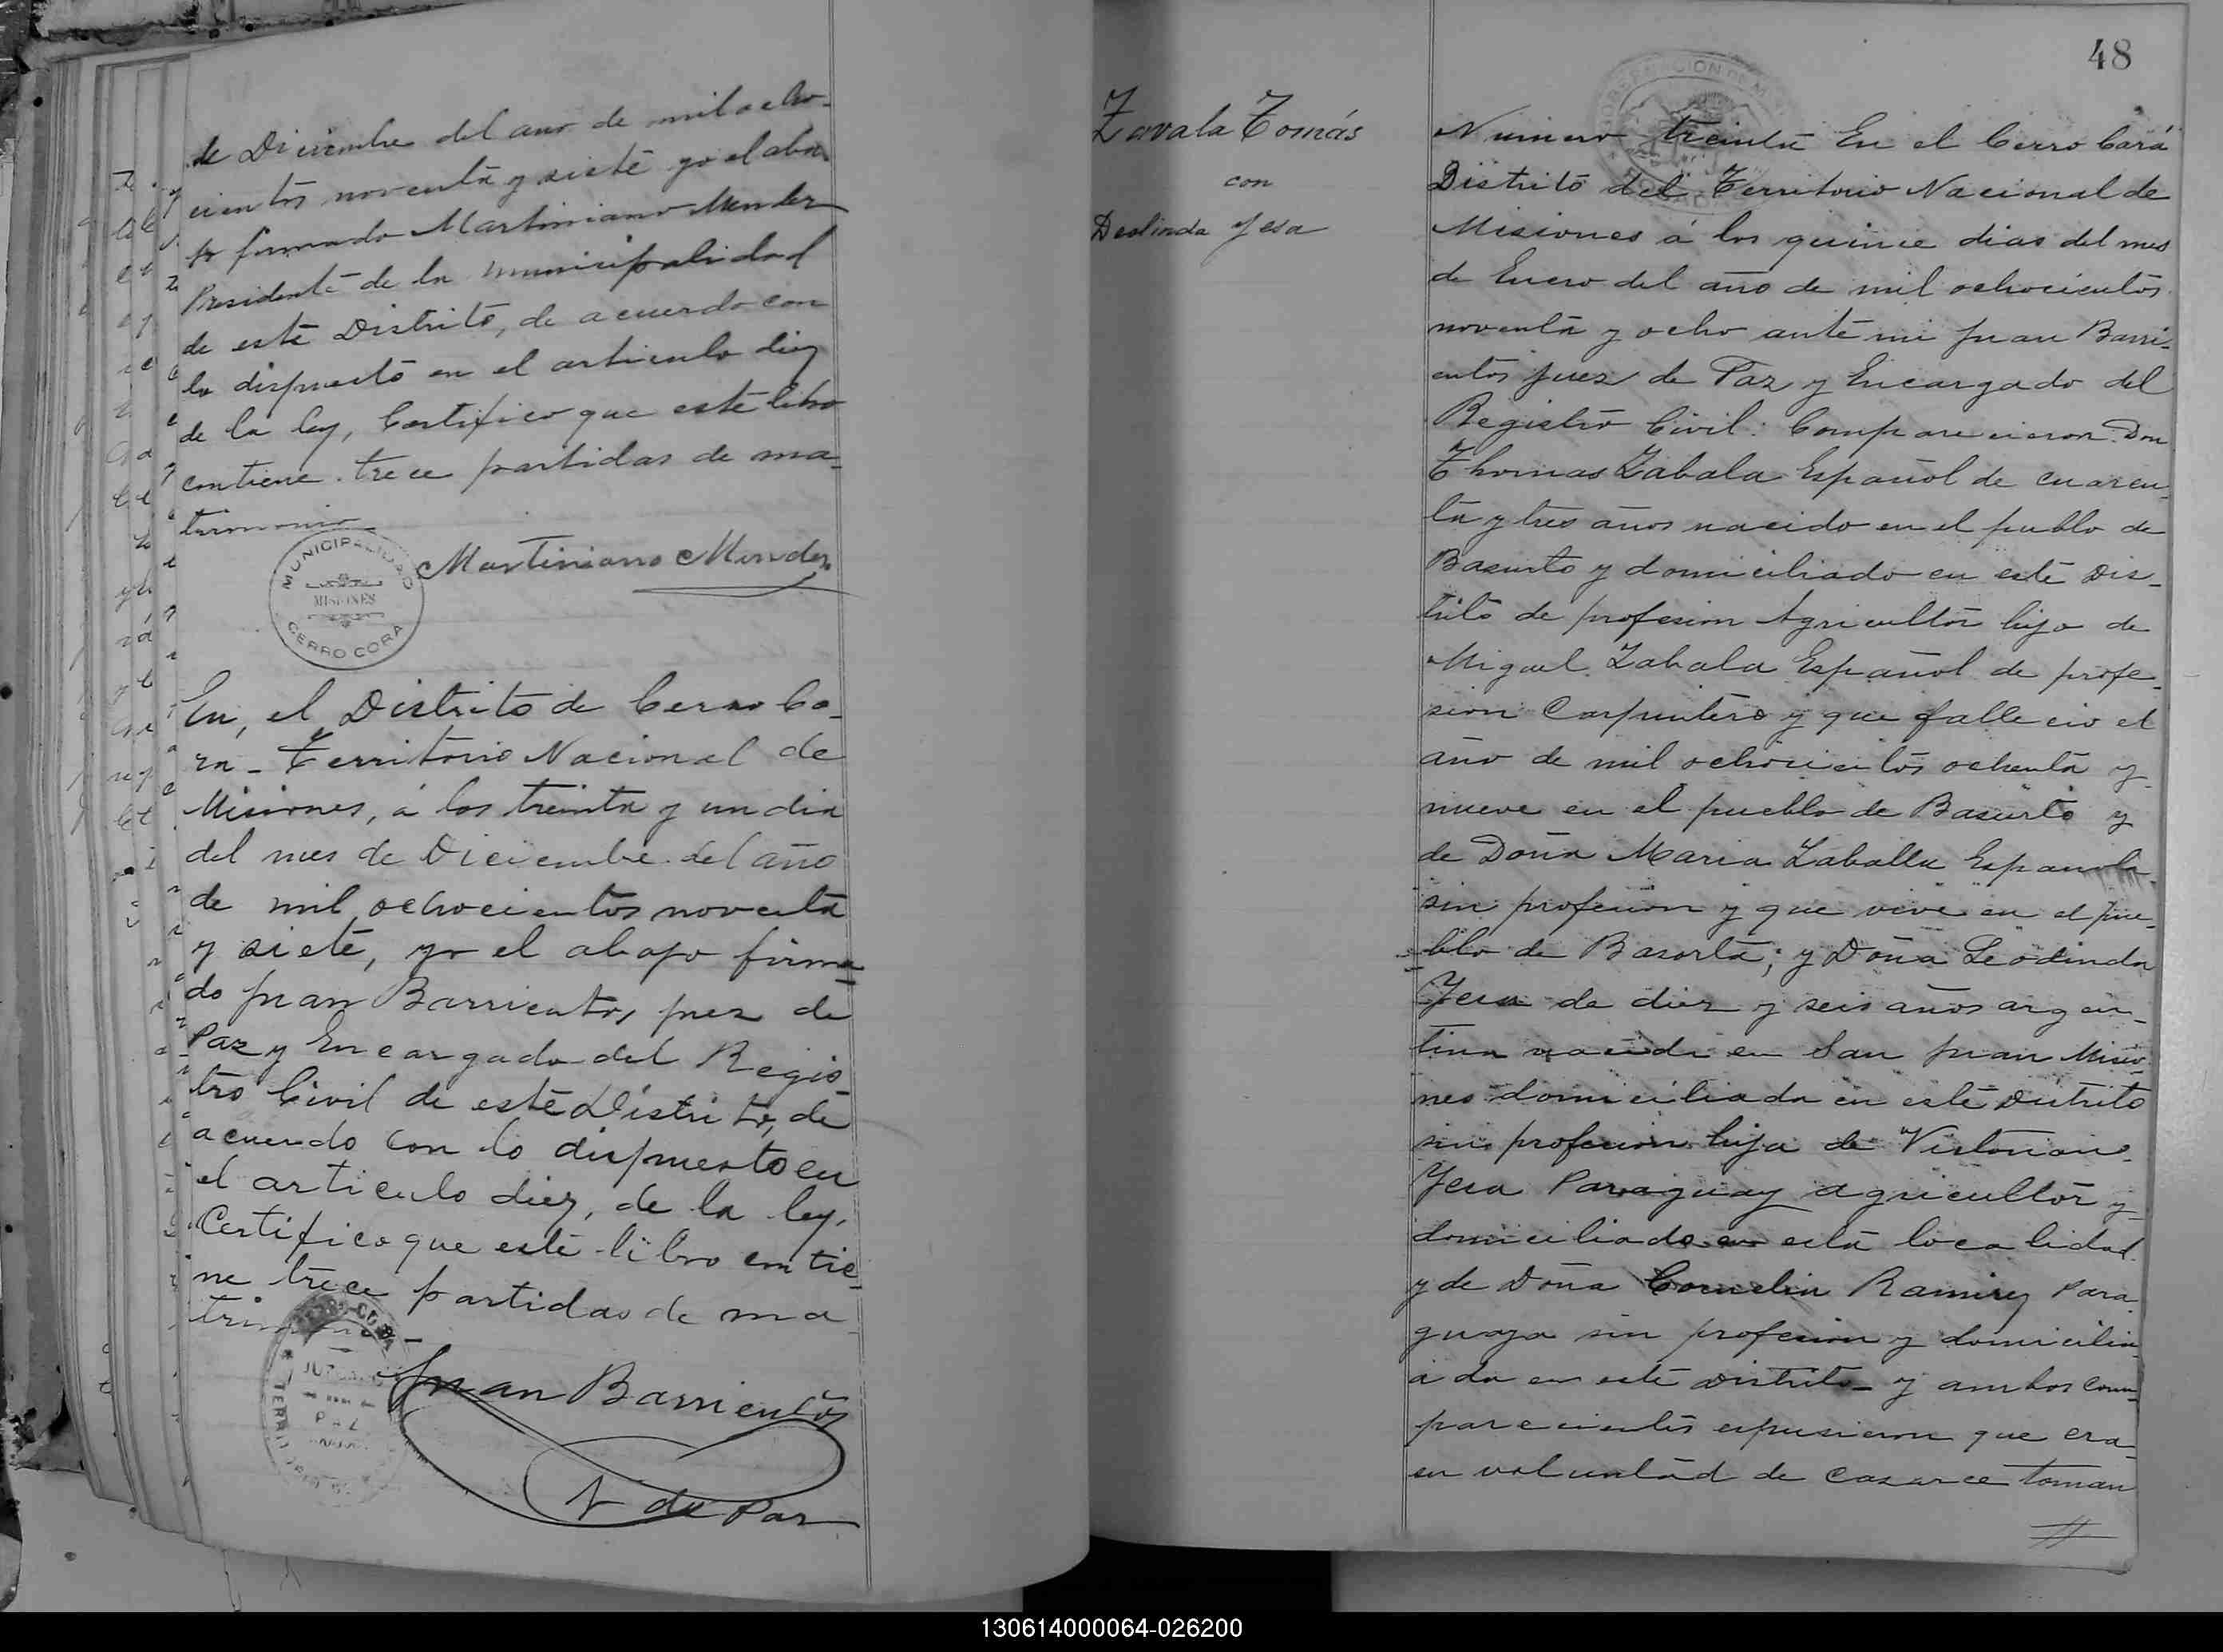 de Diciembre del año de mil ocho-
cientos noventa y siete yo el aba-
jo firmado Martiniano Mendez
Presidente de la municipalidad
de este Distrito, de acuerdo con
lo dispuesto en el articulo diez
de la ley, Certifico que este libro
contiene trece partidas de ma-
trimonio
Martiniano Mendez
MUNICIPALIDAD
MISIONES
CERRO CORA
En, el Distrito de Cerro Co-
ra - Territorio Nacional de
Misiones, á los treinta y un dia
del mes de Diciembre del año
de mil ochocientos noventa
y siete, yo el abajo firma-
do Juan Barrientos, juez de
Paz y Encargado del Regis-
tro Civil de este Distrito, de
acuerdo con lo dispuesto en
el articulo diez, de la ley,
Certifico que este libro contie-
ne trece partidas de ma-
trimonio -
Juan Barrientos
J de Paz
48
Zavala Tomás
con
Deolinda Yesa
Numero treinta En el Cerro Corá
Distrito del Territorio Nacional de
Misiones á los quince dias del mes
de Enero del año de mil ochocientos
noventa y ocho ante mi Juan Barri-
entos Juez de Paz y Encargado del
Registro Civil: Comparecieron Don
Thomas Zabala Español de cuaren-
ta y tres años nacido en el pueblo de
Basurto y domiciliado en este Dis-
trito de profesion Agricultor hijo de
Miguel Zabala Español de profe-
sion Carpintero y que fallecio el
año de mil ochocientos ochenta y
nueve en el pueblo de Basurto y
de Doña Maria Zaballa Española
sin profecion y que vive en el pue-
blo de Basorta; y Doña Leodinda
Yesa de diez y seis años argen-
tina nacida en San Juan Misio-
nes domiciliada en este Distrito
sin profecion hija de Victoriano
Yesa Paraguay agricultor y
domiciliado en esta localidad
y de Doña Cornelia Ramirez Para
guaya sin profecion y domicilia-
a da en este Distrito - y ambos com-
parecientes expusieron que era
su voluntad de casarce toman
//
130614000064-026200